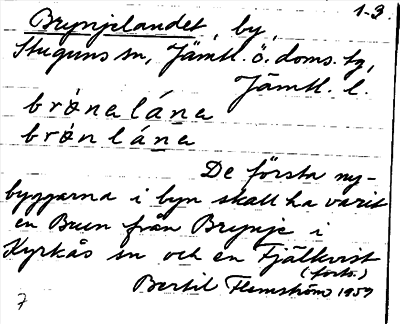 1-3.
Brynjelandet, by,
Stuguns sn, Jämtl. ö. doms. tg,
Jämtl. l.
brø̀nalána
brø̀nlána
De första ny-
byggarna i byn skall ha varit
en Buen från Brynje i
Kyrkås sn och en Fjälkvist
(forts.)
Bertil Flemström 1959
7